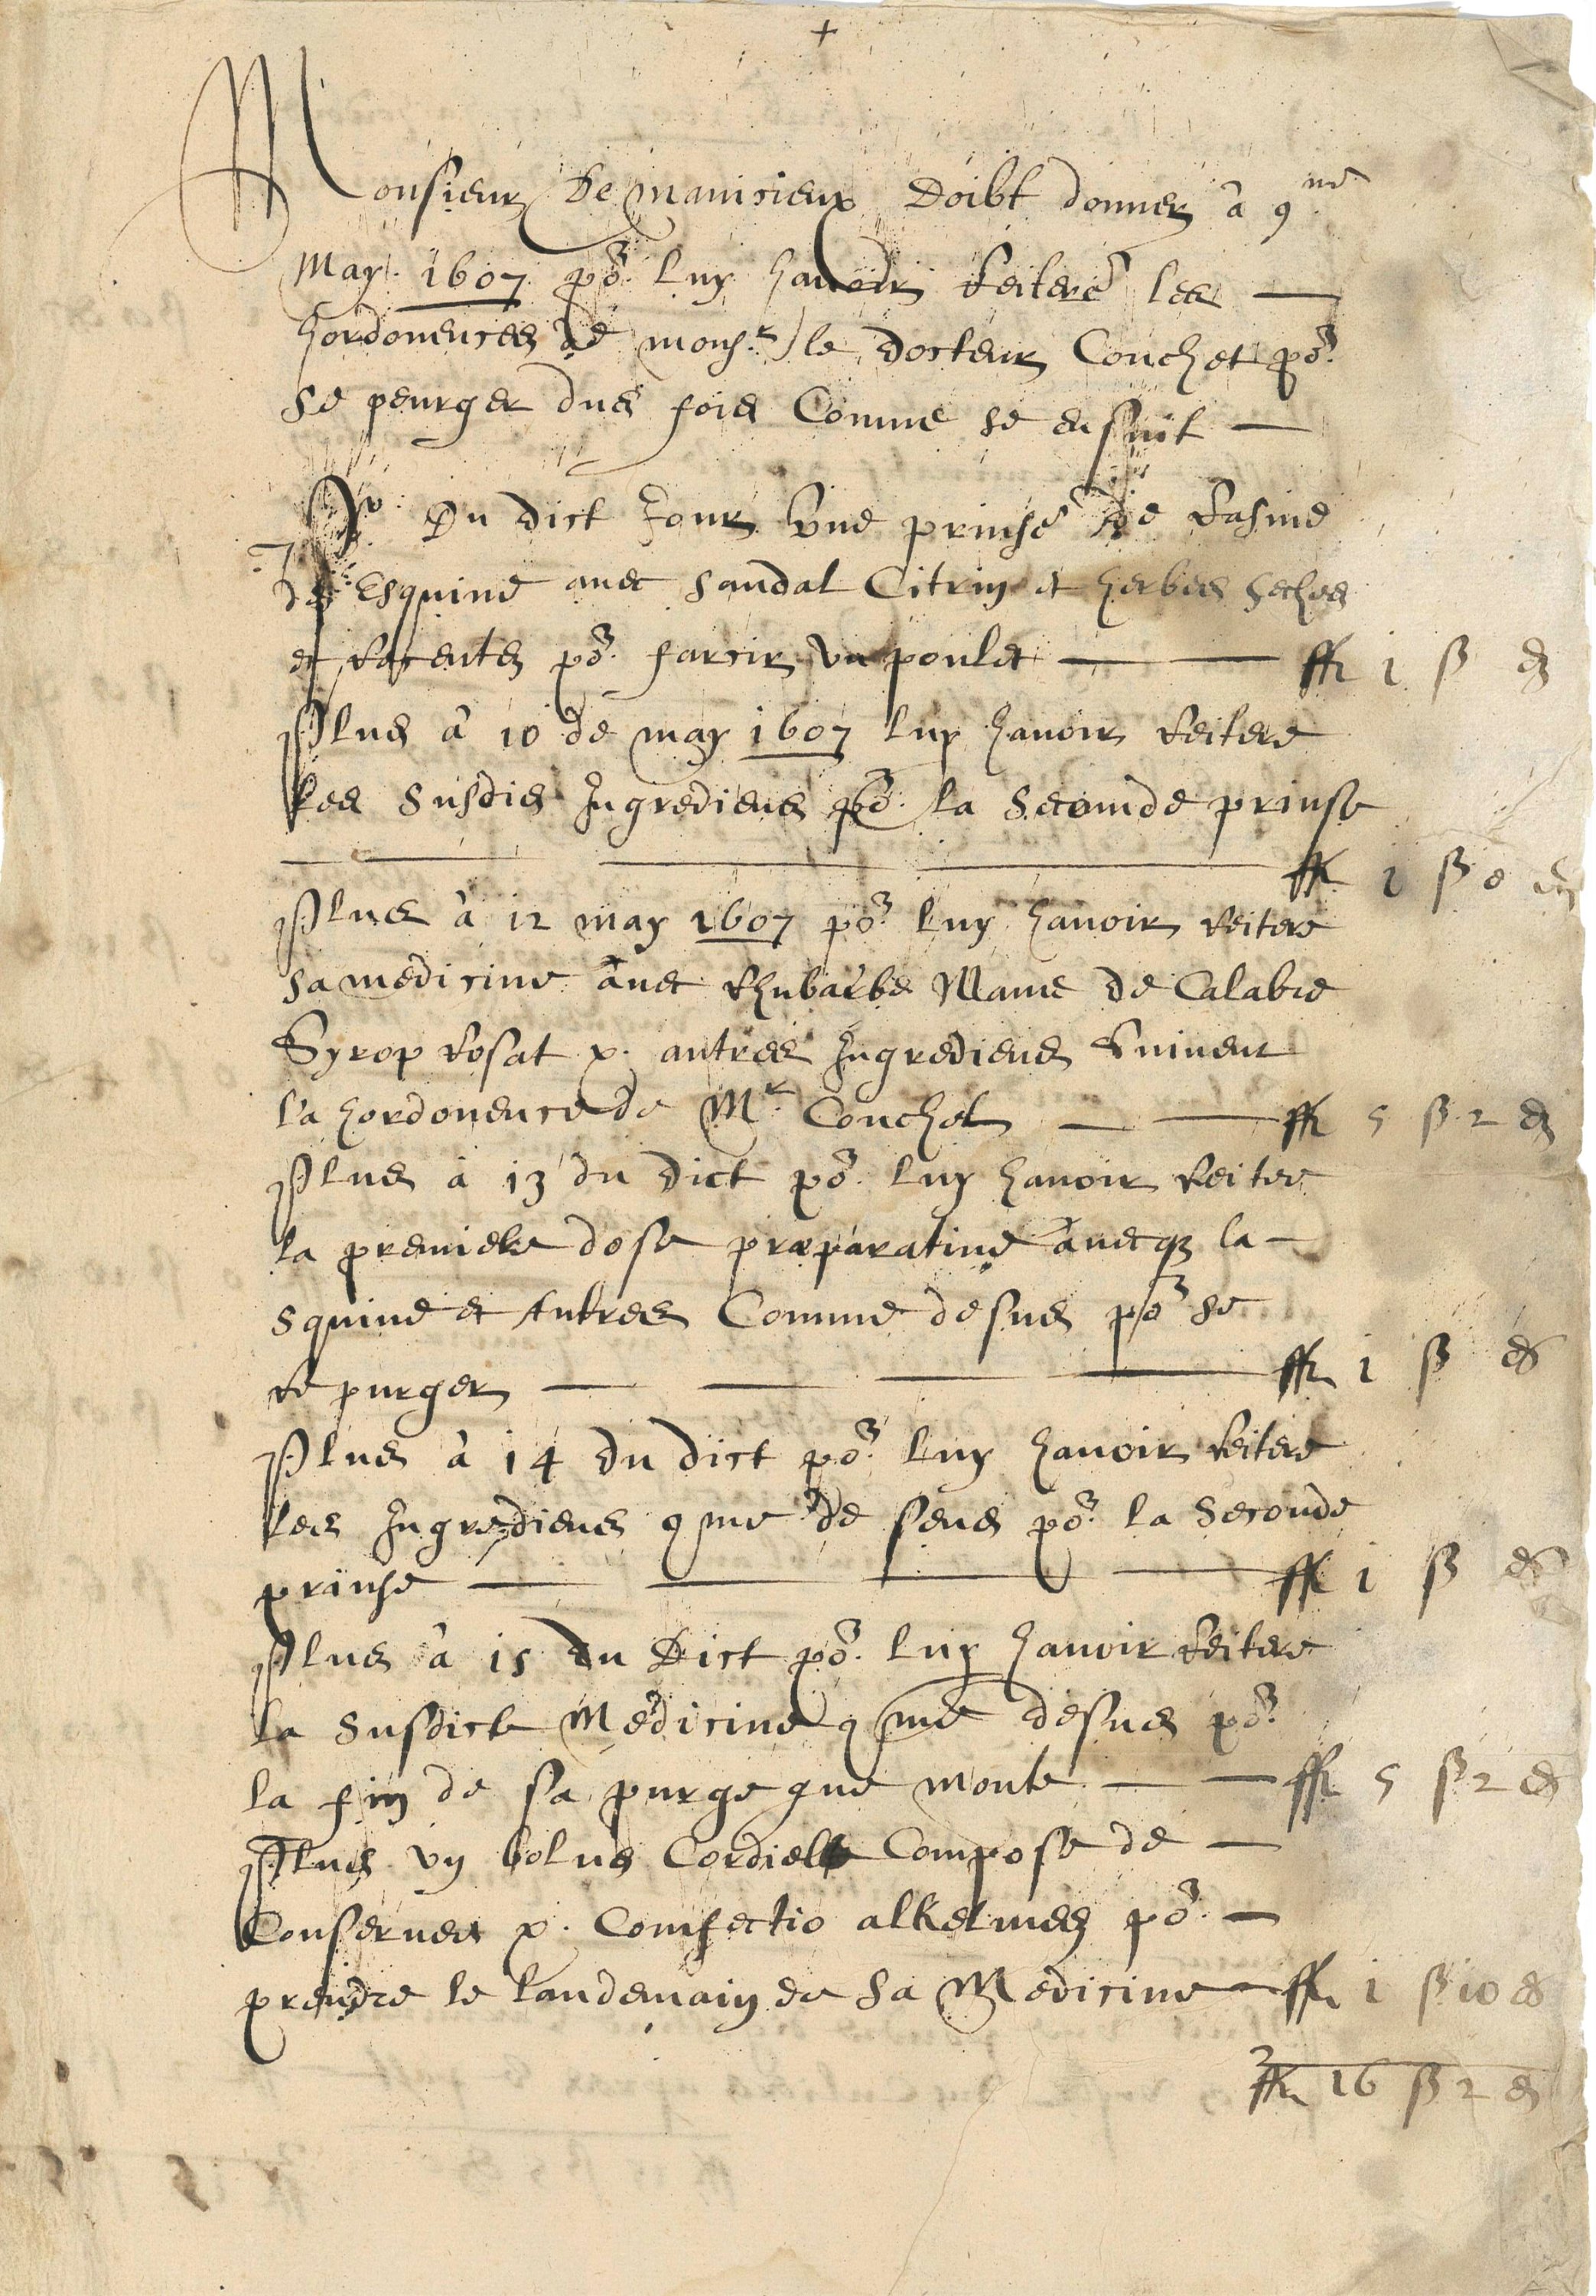 +
Monsieur De Manisieux Doibt donner à 9me
May 1607 po. luy havoir Reiteré les —
hordonences de monsr. le docteur Couchet po.
se peurger dus fois Comme se ensuit —
Po. Du dict Jour vne prinse de Rasine
de Esquine auec sandal Citrin et herbes seches
et Racentes po. farcir vn poulet — — ff 1 ß ds
Plus à 10 de may 1607 luy havoir Reitere
les susdis Ingrediens po. la Secomde prinse
— — — — ff 1 ß 0 ds
Plus à 12 may 1607 po. luy havoir Reitere
sa medicine avec Rhubarbe Mame de Calabre
Syrop Rosat x. autres Ingrediens Suivent
la hordonence de Mr. Couchet — — ff 5 ß 2 ds
Plus à 13 du dict po. luy havoir Reitere
la premiere dose præparative avecq la —
squine et Autres Comme desus po. se
repurger — — — — ff 1 ß ds
Plus à 14 du dict po. luy havoir Reitere
les Ingrediens 9me de seus po. la Seconde
prinse — — — — ff 1 ß ds
Plus à 15 du Dict po. luy havoir Reitere
la susdicte Medicine 9me desus po.
la fin de sa purge que monte — — ff 5 ß 2 ds
Plus vn bolus Cordiell Compose de —
Conserves x. Comfectio alkermes po. —
prendre le landemain de sa Medicine — ff 1 ß 10 ds
ff 16 ß 2 ds